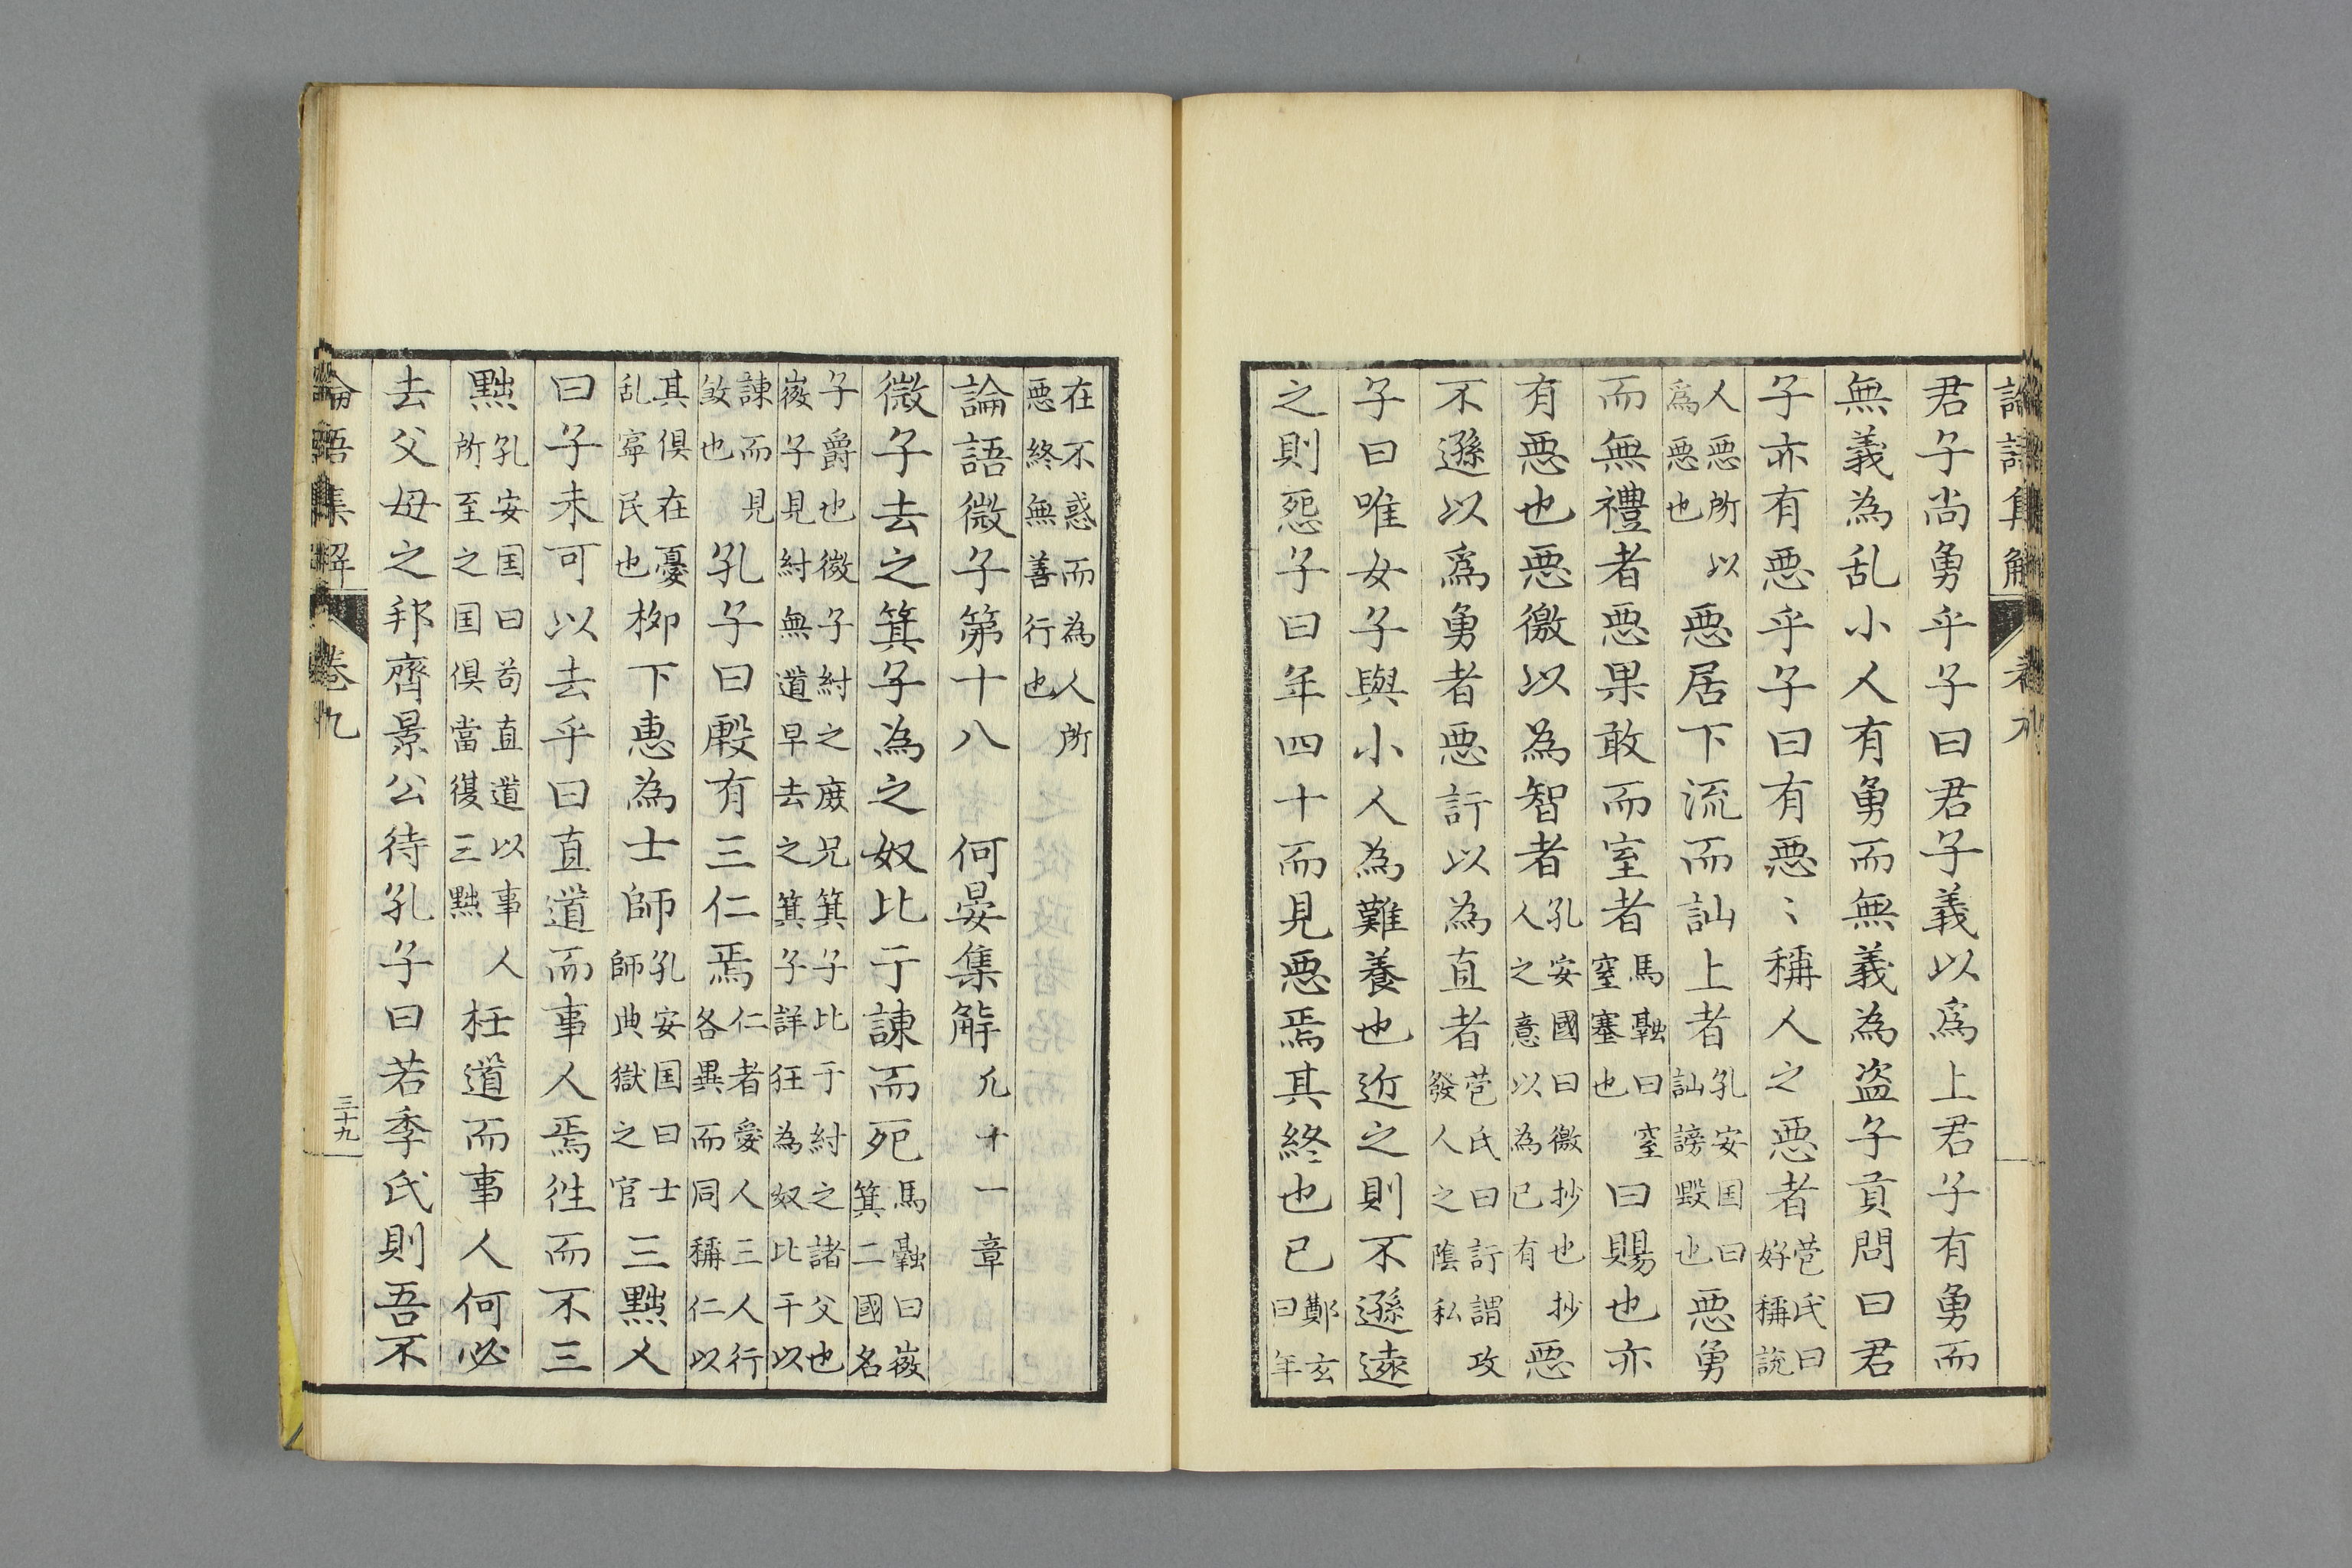 君子尚勇乎子曰君子義以爲上君子有勇而
無義為乱小人有勇而無義為盗子貢問曰君
子亦有惡乎子曰有惡〻稱人之惡者苞氏曰好稱說
人惡所以爲惡也惡居下流而訕上者孔安囯曰訕謗毀也惡勇
而無禮者惡果敢而窒者馬融曰窒窒塞也曰賜也亦
有惡也惡徼以為智者孔安國曰徼抄也抄人之意以為己有惡
不遜以爲勇者惡訐以為直者苞氏曰訐謂攻發人之陰私
子曰唯女子與小人為難養也近之則不遜遠
之則怨子曰年四十而見惡焉其終也已鄭玄曰年
在不惑而為人所惡終無善行也
論語微子第十八 何晏集解凢十一章
微子去之箕子為之奴比于諫而死馬融曰微箕二國名
子爵也微子紂之庻兄箕子比于紂之諸父也微子見紂無道早去之箕子詳狂為奴比干以
諫而見敓也孔子曰殷有三仁焉仁者愛人三人行各異而同稱仁以
其俱在憂乱寧民也栁下惠為士師孔安囯曰士師典獄之官三黜人
曰子未可以去乎曰直道而事人焉徃而不三
黜孔安囯曰苟直道以事人所至之囯俱當復三黜枉道而事人何必
去父母之邦齊景公待孔子曰若季氏則吾不
論語集解 卷九 三十九